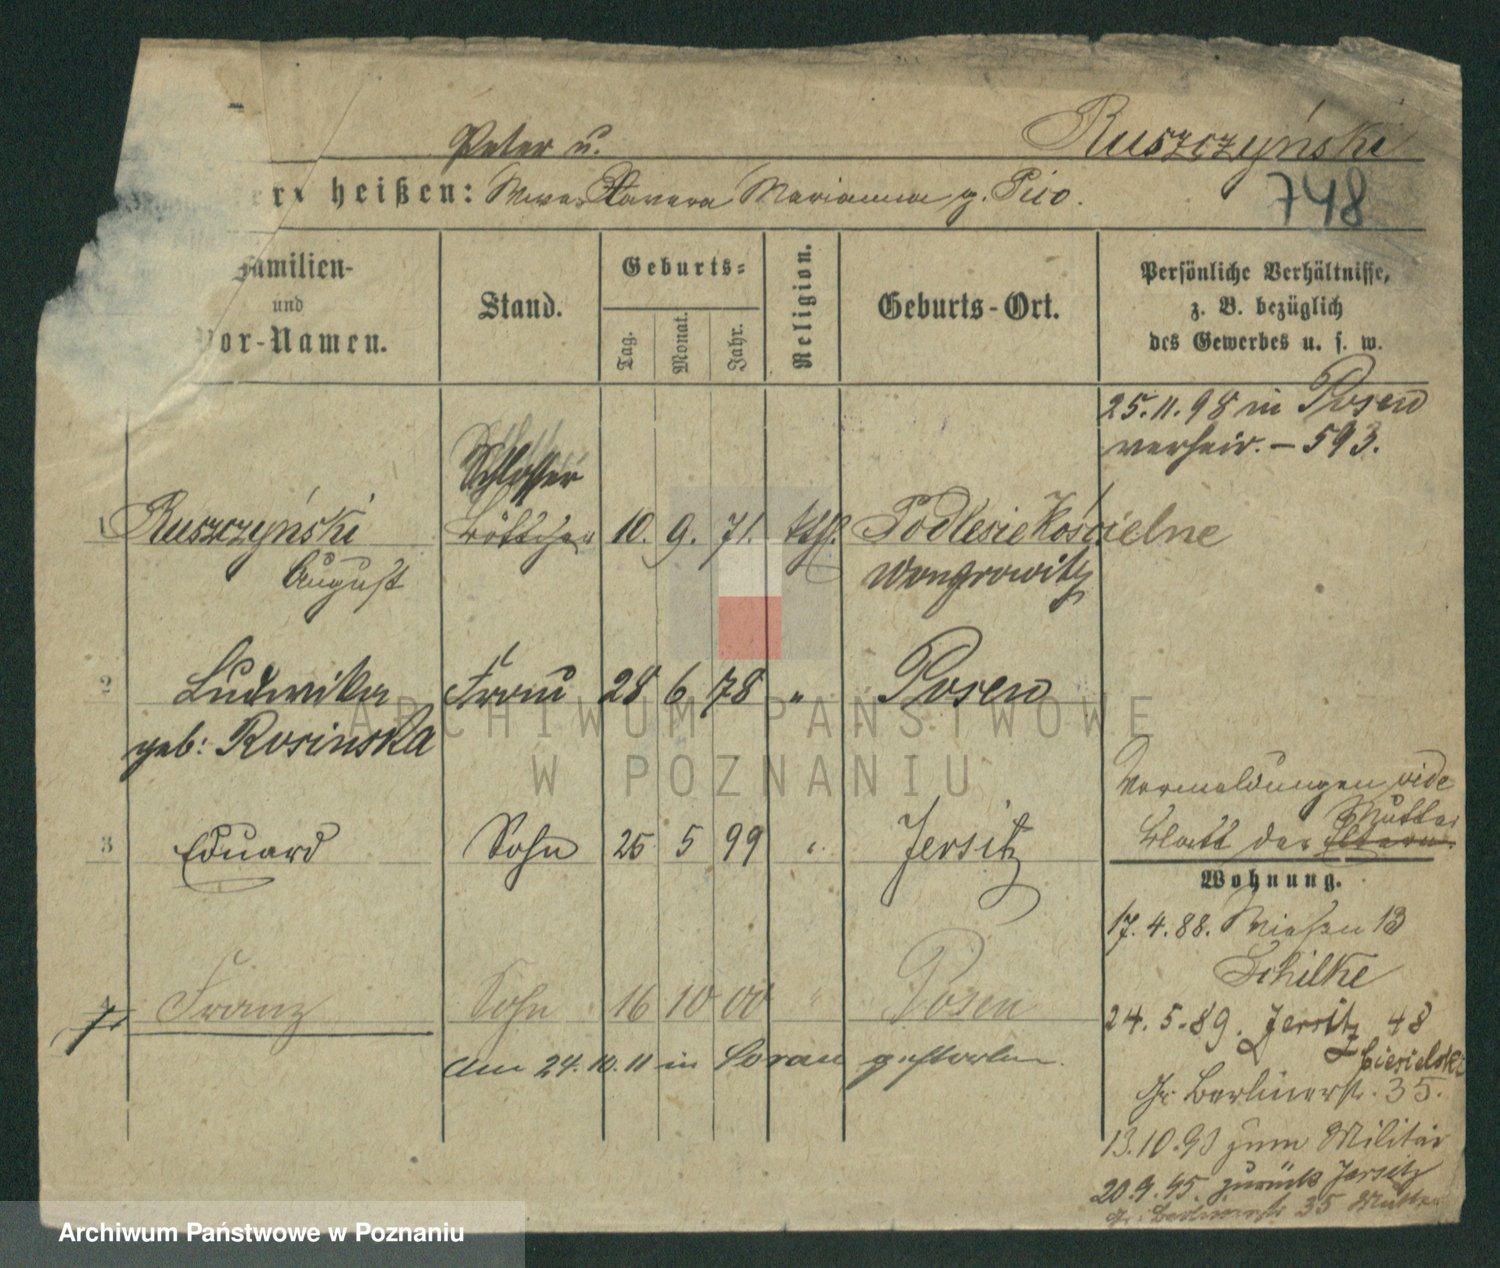 Peter u.
Ruszczyński
heißen: Wwe Xavera Marianna g. Pico.
748
Familien-
und
Vor-Namen.
Stand.
Geburts-
Tag.
Monat.
Jahr.
Religion.
Geburts-Ort.
Persönliche Verhältnisse,
z. B. bezüglich
des Gewerbes u. s. w.
25.11.98 in Posen
verheir. - 593.
Schlosser
1 Ruszczyński Böttcher 10. 9. 71. kth. Podlesie Kościelne
August
Wongrowitz
2 Ludwika Frau 28 6 78 " Posen
geb: Rosinska
Vermeldungen vide
Mutter
Blatt der Eltern.
3 Eduard Sohn 25 5 99 " Jersitz
Wohnung.
17.4.88. Wiesen 13
Schilke
4 Franz Sohn 16 10 00 " Posen
24.5.89. Jersitz 48
Ciesielski
Am 24.10.11 in Soran gestorben.
Gr. Berlinerstr. 35.
13.10.93 zum Militär
20.9.95. zurück Jersitz
Gr. Berlinerstr 35 Mutter
ARCHIWUM PAŃSTWOWE
W POZNANIU
Archiwum Państwowe w Poznaniu